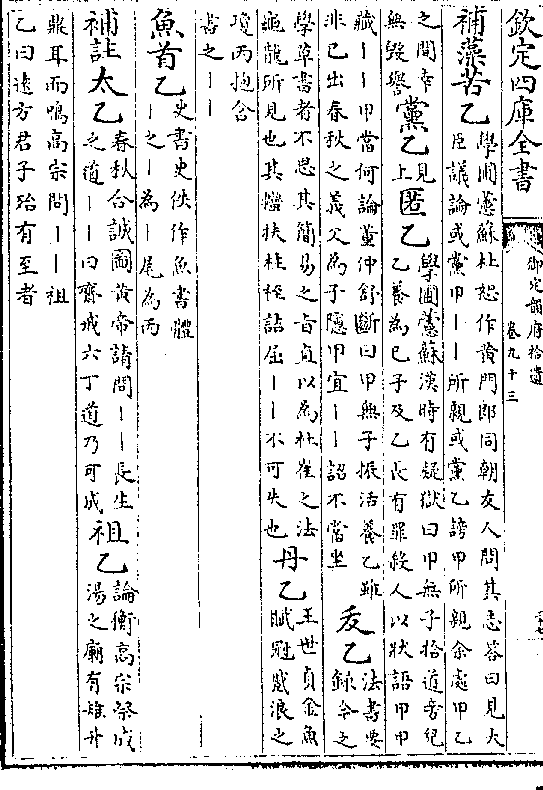 欽定四庫全書
御定韻府拾遺
卷九十三
補藻苦乙
學圃薏蘇杜恕作黄門郎同朝友人問其志答曰見大
臣議論或黨甲丨丨所親或黨乙謗甲所親余處甲乙
之間幸
無毁譽
黨乙
見
上
匿乙
學圃薏蘇漢時有疑獄曰甲無子拾道旁兒
乙養為已子及乙長有罪殺人以狀語甲甲
藏丨丨甲當何論董仲舒斷曰甲無子振活養乙雖
非已出春秋之義父為子隱甲宜丨丨詔不當坐
犮乙
法書要
録今之
學草書者不思其簡易之旨直以為杜崔之法
龜龍所見也其軆扶柱桎詰屈丨丨不可失也
丹乙
王世貞金魚
賦冠蹙浪之
瓊丙抱含
書之丨丨
魚首乙
史書史佚作魚書體
丨之丨為丨尾為丙
補註太乙
春秋合誠圖黄帝請問丨丨長生
之道丨丨曰齋戒六丁道乃可成
祖乙
論衡高宗祭成
湯之廟有雉升
鼎耳而鳴高宗問丨丨祖
乙曰遠方君子殆有至者